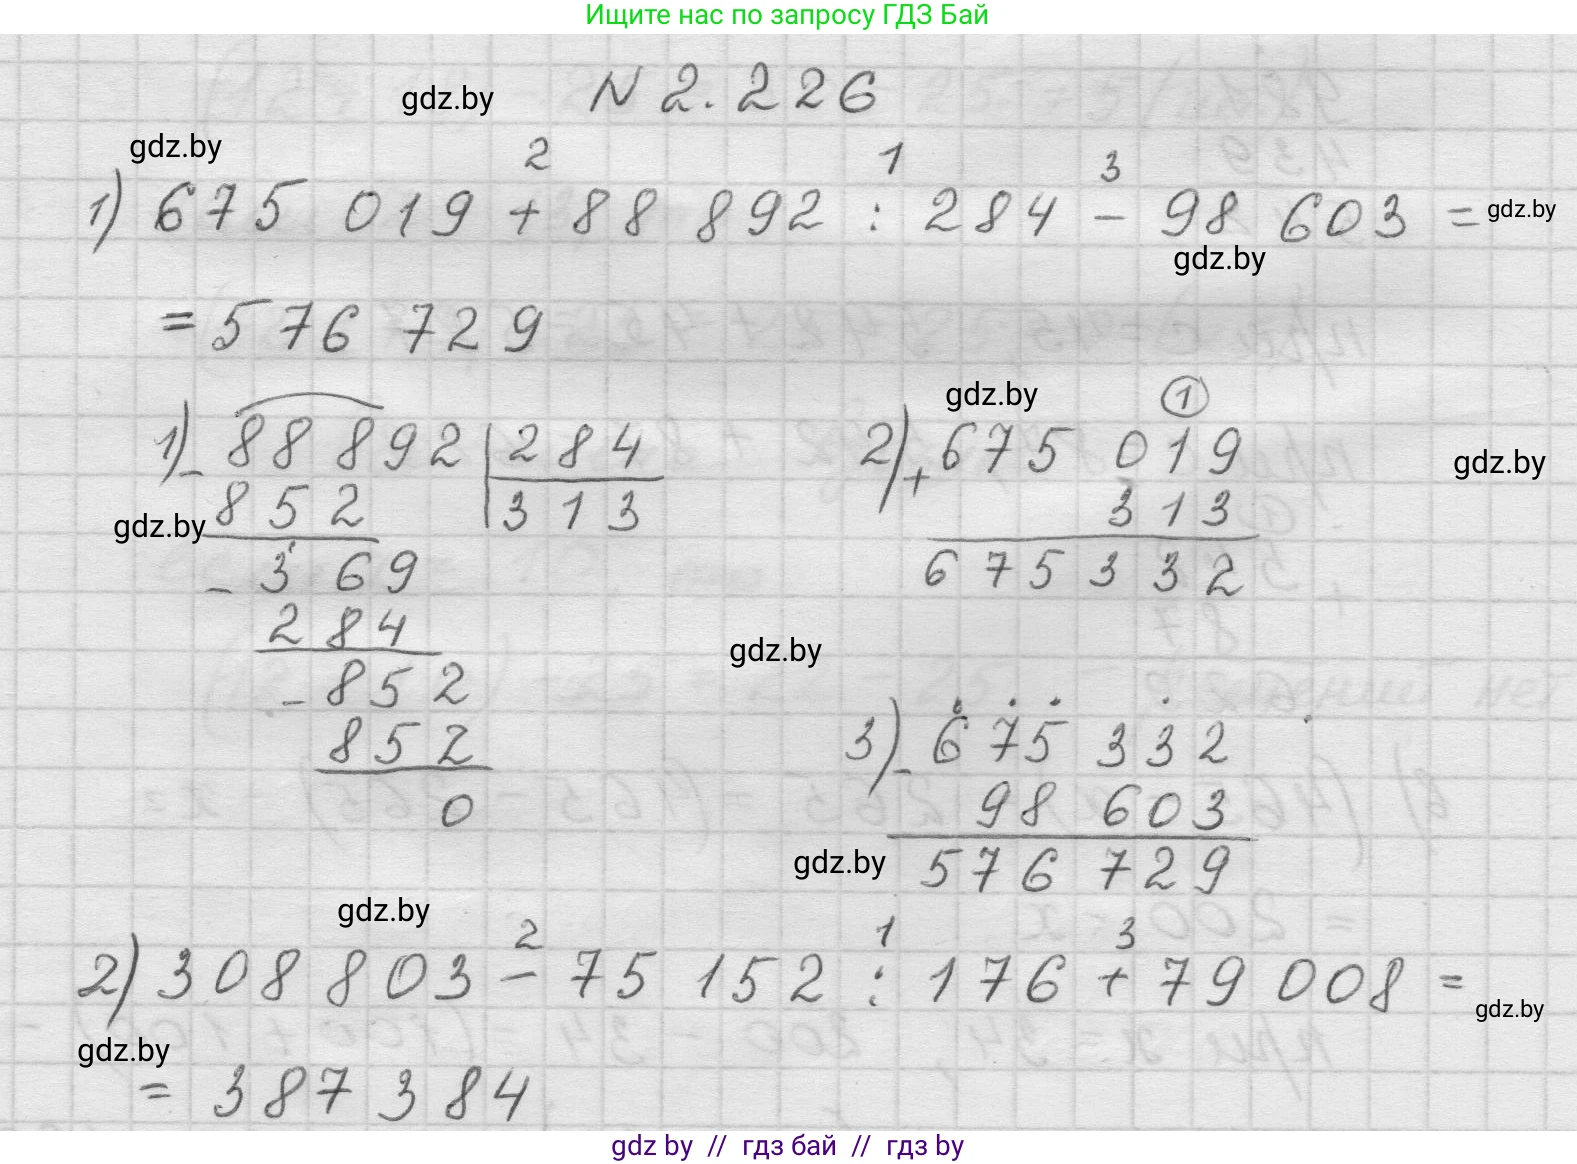 Ищите нас по запросу ГДЗ Бай
N 2.226
gdz.by
gdz.by
2 1 3
1) 675 019 + 88 892 : 284 - 98 603 =
gdz.by
gdz.by
= 576 729
gdz.by
1) - 88 892 | 284
852 313
gdz.by
- 369
284
- 852
852
0
1
2) + 675 019
313
675 332
gdz.by
gdz.by
3) - 675 332
98 603
576 729
gdz.by
gdz.by
2 1 3
2) 308 803 - 75 152 : 176 + 79 008 =
gdz.by
gdz.by
= 387 384
gdz by // гдз бай // гдз by